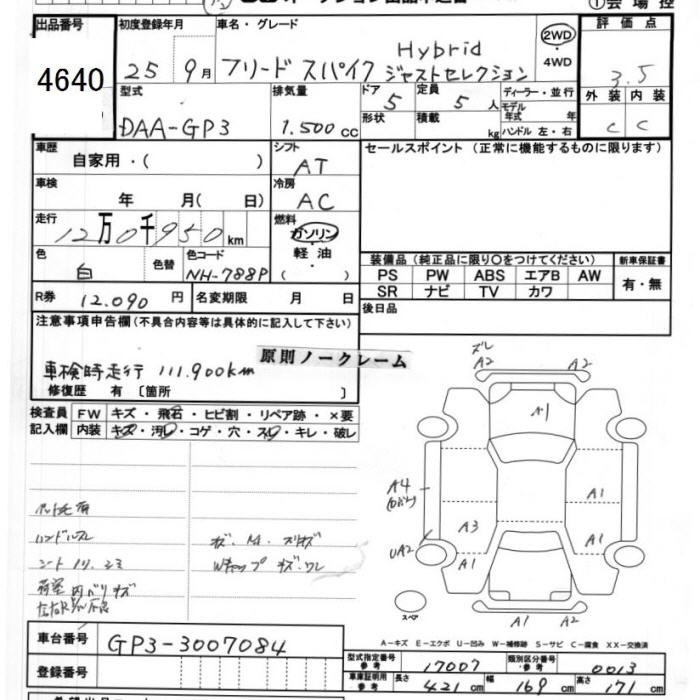 ①会場控
出品番号 初度登録年月 車名・グレード 2WD ・ 4WD 評価点
4640 25 9月 フリード スパイク Hybrid ジャストセレクション 3.5
型式 排気量 ドア 定員 ディーラー・並行 外装 内装
DAA-GP3 1.500cc 5 5人 モデル年式 年 C C
形状 積載 kg ハンドル 左・右
車歴 シフト セールスポイント (正常に機能するものに限ります)
自家用・( ) AT
車検 冷房
年 月( 日) AC
走行 燃料
12万0千950km ガソリン・軽油・( )
色 色替 色コード 装備品 (純正品に限り○をつけてください) 新車保証書
白 NH-788P PS PW ABS エアB AW 有・無
SR ナビ TV カワ
R券 12.090円 名変期限 月 日 後日品
注意事項申告欄(不具合内容等は具体的に記入して下さい)
原則ノークレーム
車検時走行 111.900km
修復歴 有 〔箇所 〕
検査員 FW キズ・飛石・ヒビ割・リペア跡・×要
記入欄 内装 キズ・汚レ・コゲ・穴・スレ・キレ・破レ
ズレ
A2 A2
A1
A4
A1
A3 A1
UA2 A1
ハンドルスレ
Wキャップ キズ.ワレ
スペア
A1 A2
A-キズ E-エクボ U-凹み W-補修跡 S-サビ C-腐食 XX-交換済
車台番号 GP3-3007084
登録番号
型式指定番号 参考 17007 類別区分番号 参考 0013
車庫証明用 参考 長さ 421cm 幅 169cm 高さ 171cm